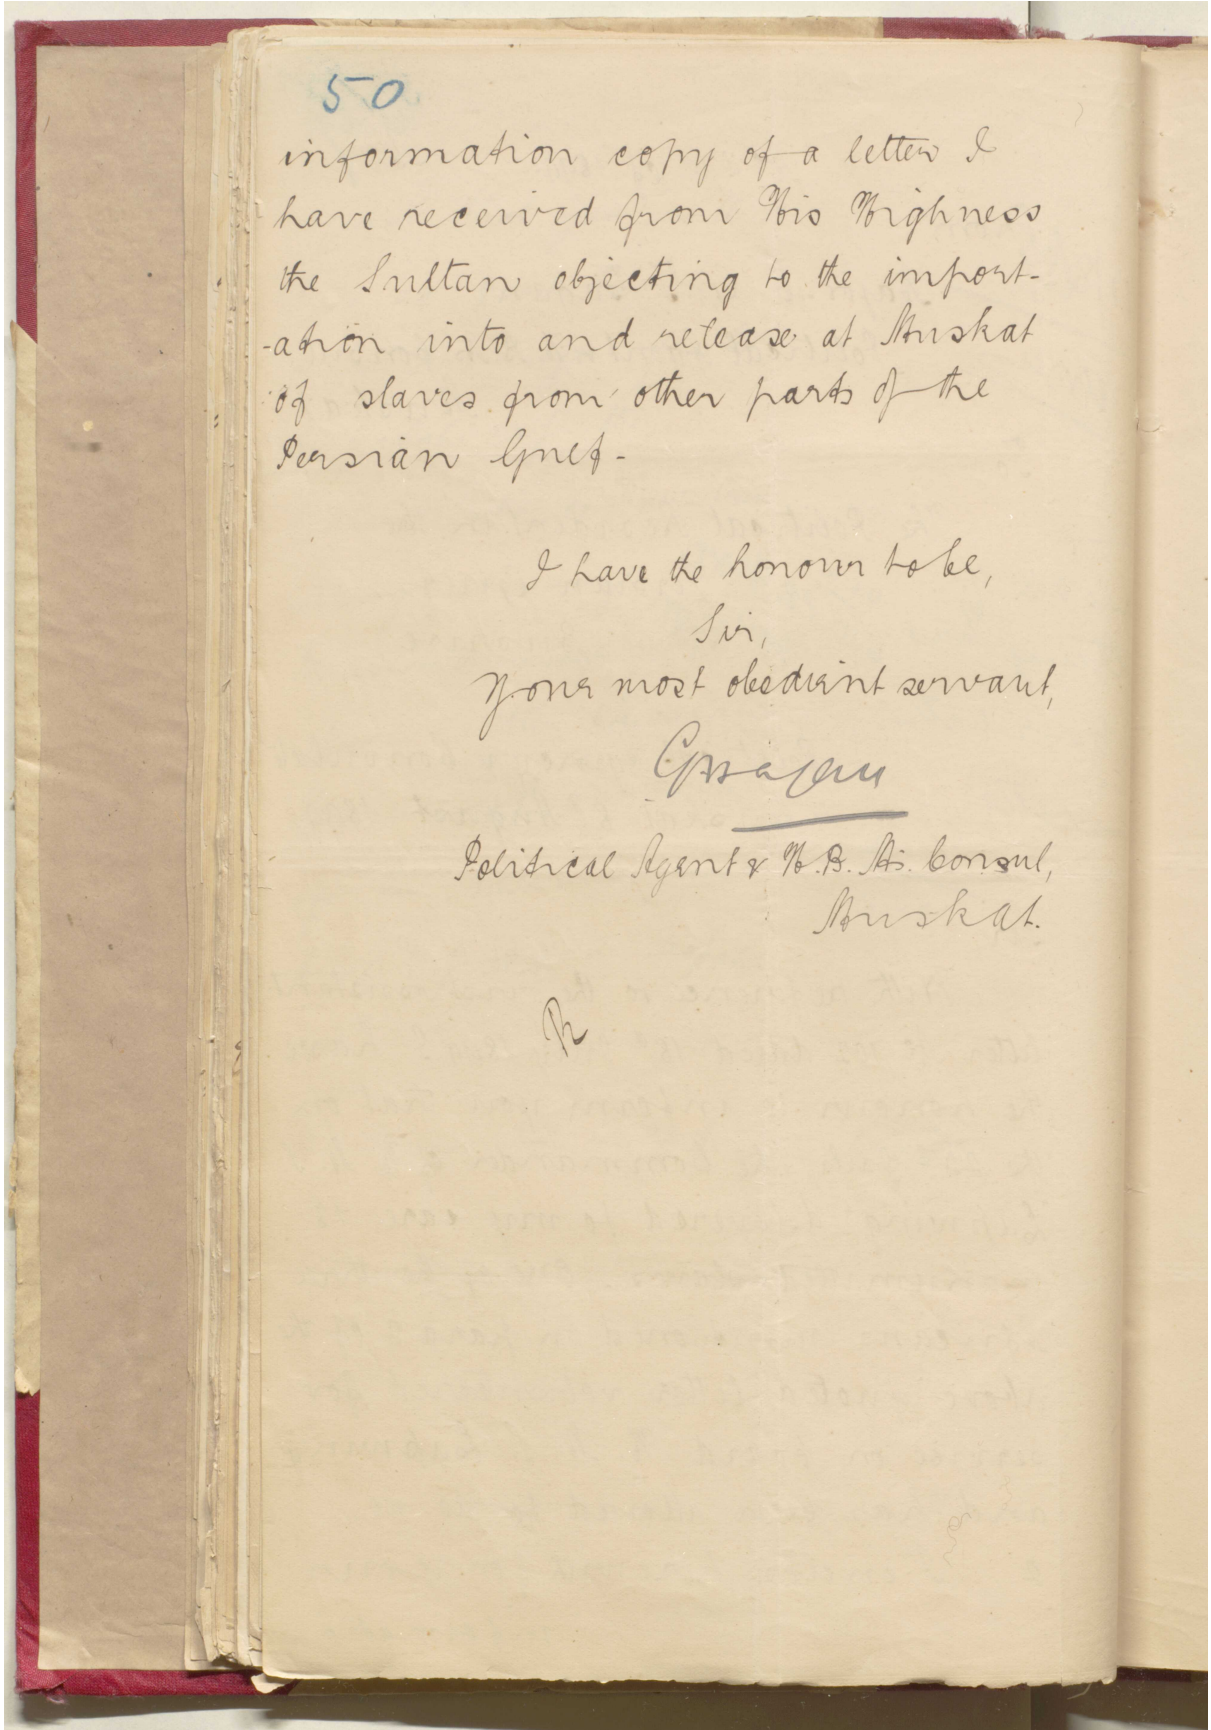 50
information copy of a letter I
have received from His Highness
the Sultan objecting to the import-
-ation into and release at Muskat
of slaves from other parts of the
Persian Gulf -
I have the honour to be,
Sir,
Your most obedient servant,
Political Agent & H. B. M's. Consul,
Muskat.